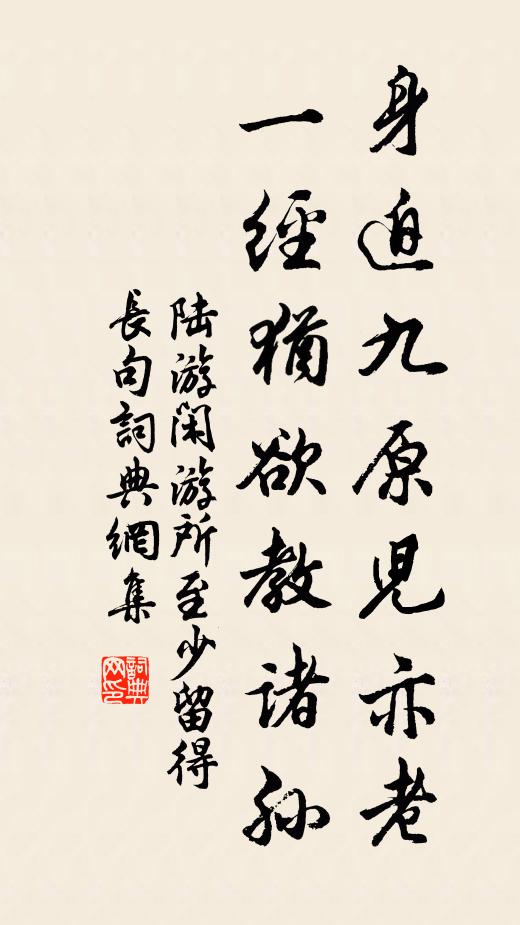 身迫九原兒亦老
一經猶欲教諸孫
陸游閑游所至少留得
長句詞典網集
詞典
网印